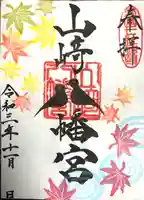 奉拝
山崎八幡宮
令和三年十一月 日